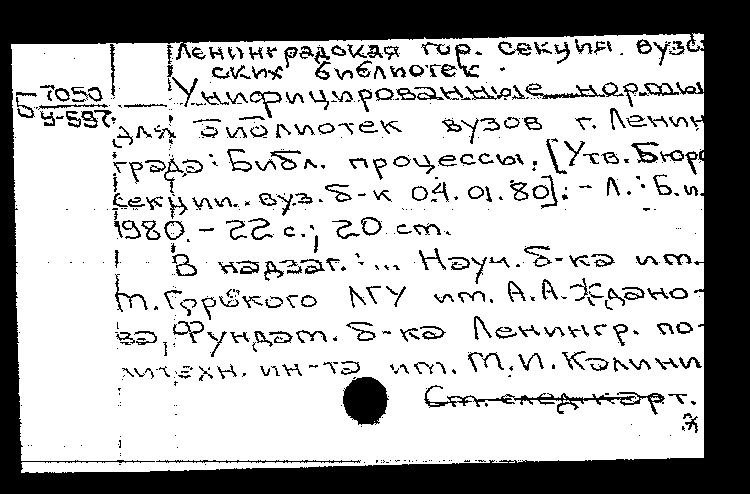 Ленинградская гор. секция вузов
ских библиотек.
Б 7050
У-597
Унифицированные нормы
для библиотек вузов г. Ленин
града: Библ. процессы. [Утв. Бюро
секции вуз. б-к 04.01.80]. - Л.: Б.и.
1980. - 22 с.; 20 см.
В надзаг.: ... Науч. б-ка им.
М. Горького ЛГУ им. А.А. Ждано-
ва, Фундам. б-ка Ленингр. по-
литехн. ин-та им. М.И. Калини
См. след. карт.